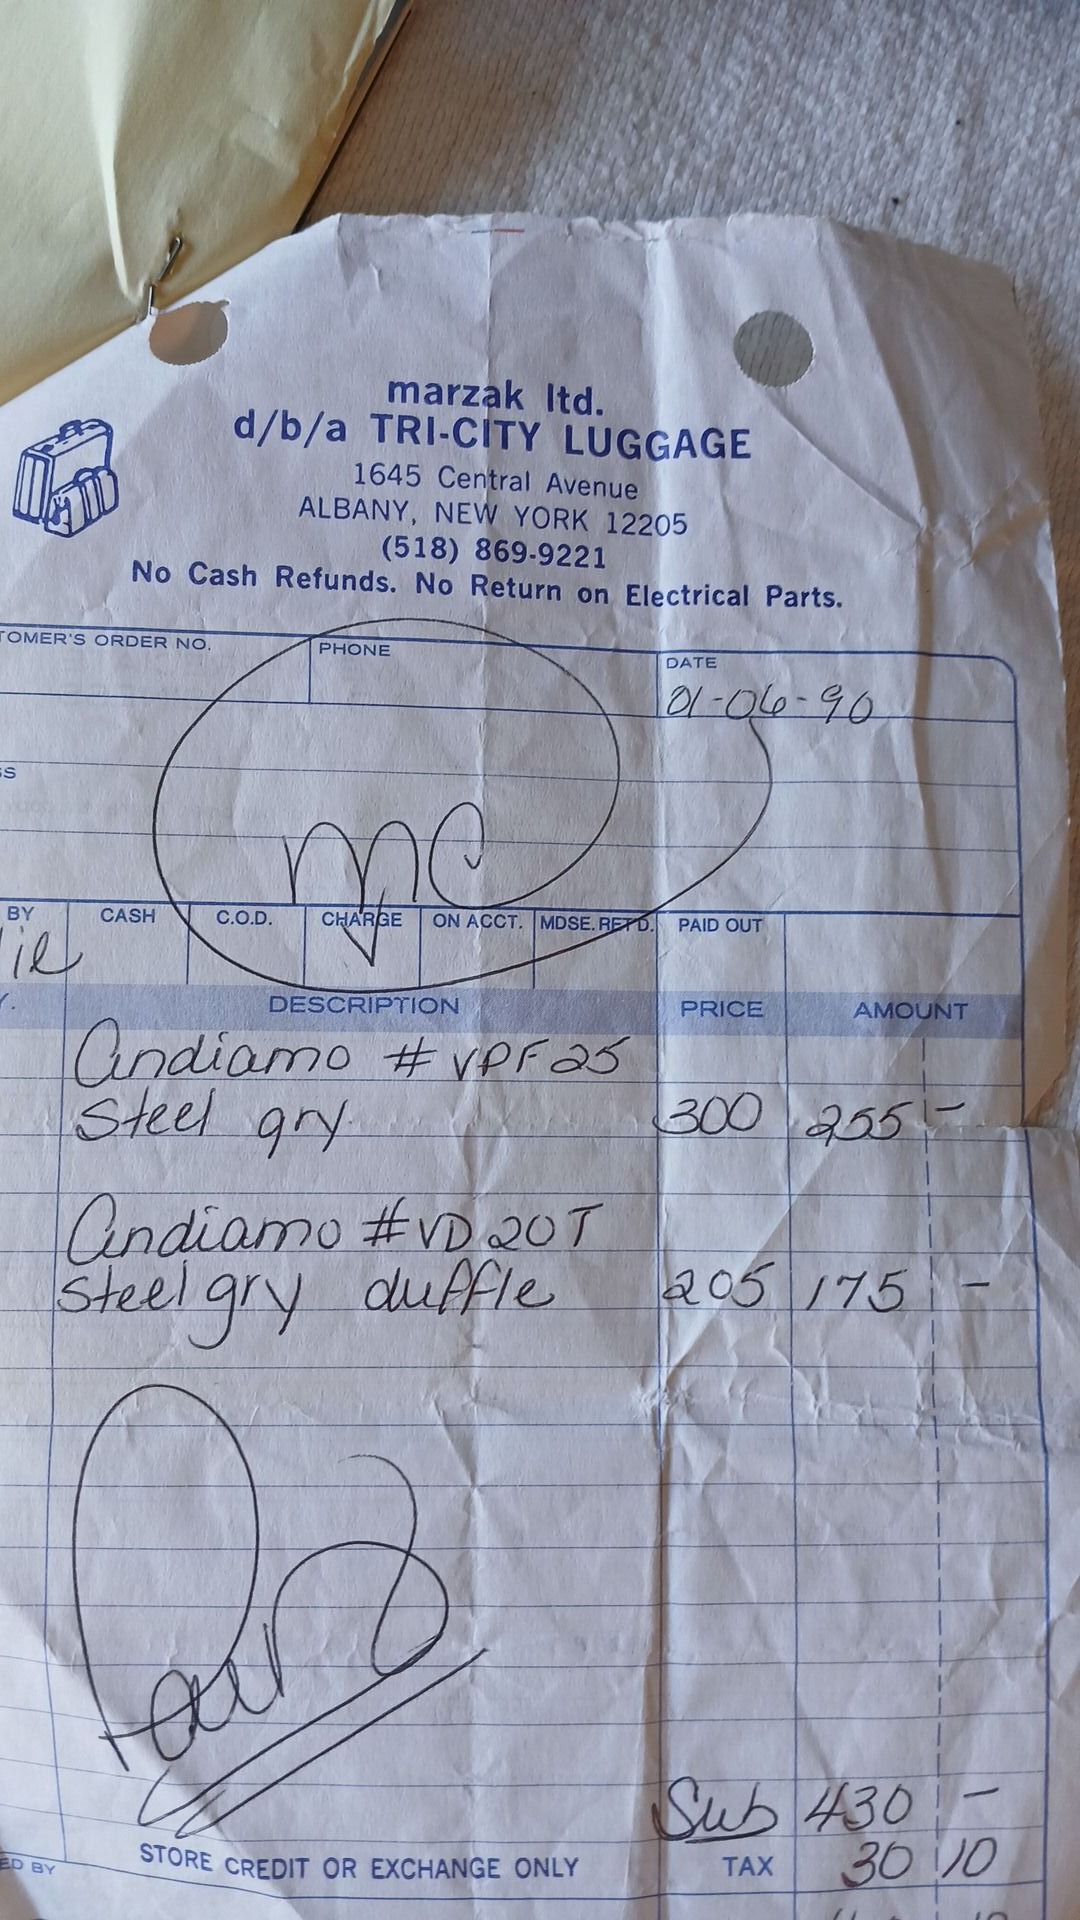 marzak ltd.
d/b/a TRI-CITY LUGGAGE
1645 Central Avenue
ALBANY, NEW YORK 12205
(518) 869-9221
No Cash Refunds. No Return on Electrical Parts.
TOMER'S ORDER NO. PHONE DATE
01-06-90
SS
MC
BY CASH C.O.D. CHARGE ON ACCT. MDSE. RET'D. PAID OUT
lie
Y. DESCRIPTION PRICE AMOUNT
Andiamo # VPF25
Steel gry 300 255 -
Andiamo #VD20T
Steel gry duffle 205 175 -
Paid
Sub 430 -
ED BY STORE CREDIT OR EXCHANGE ONLY TAX 30 10